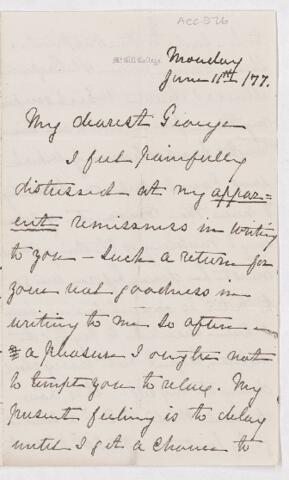 ACC-826
McGill College.
Monday
June 11th /77.
My dearest George
I feel painfully
distressed at my appar-
ent remissness in writing
to you - such a return for
your real goodness in
writing to me so often -
a pleasure I ought not
to tempt you to relax. My
present feeling is to delay
until I get a chance to